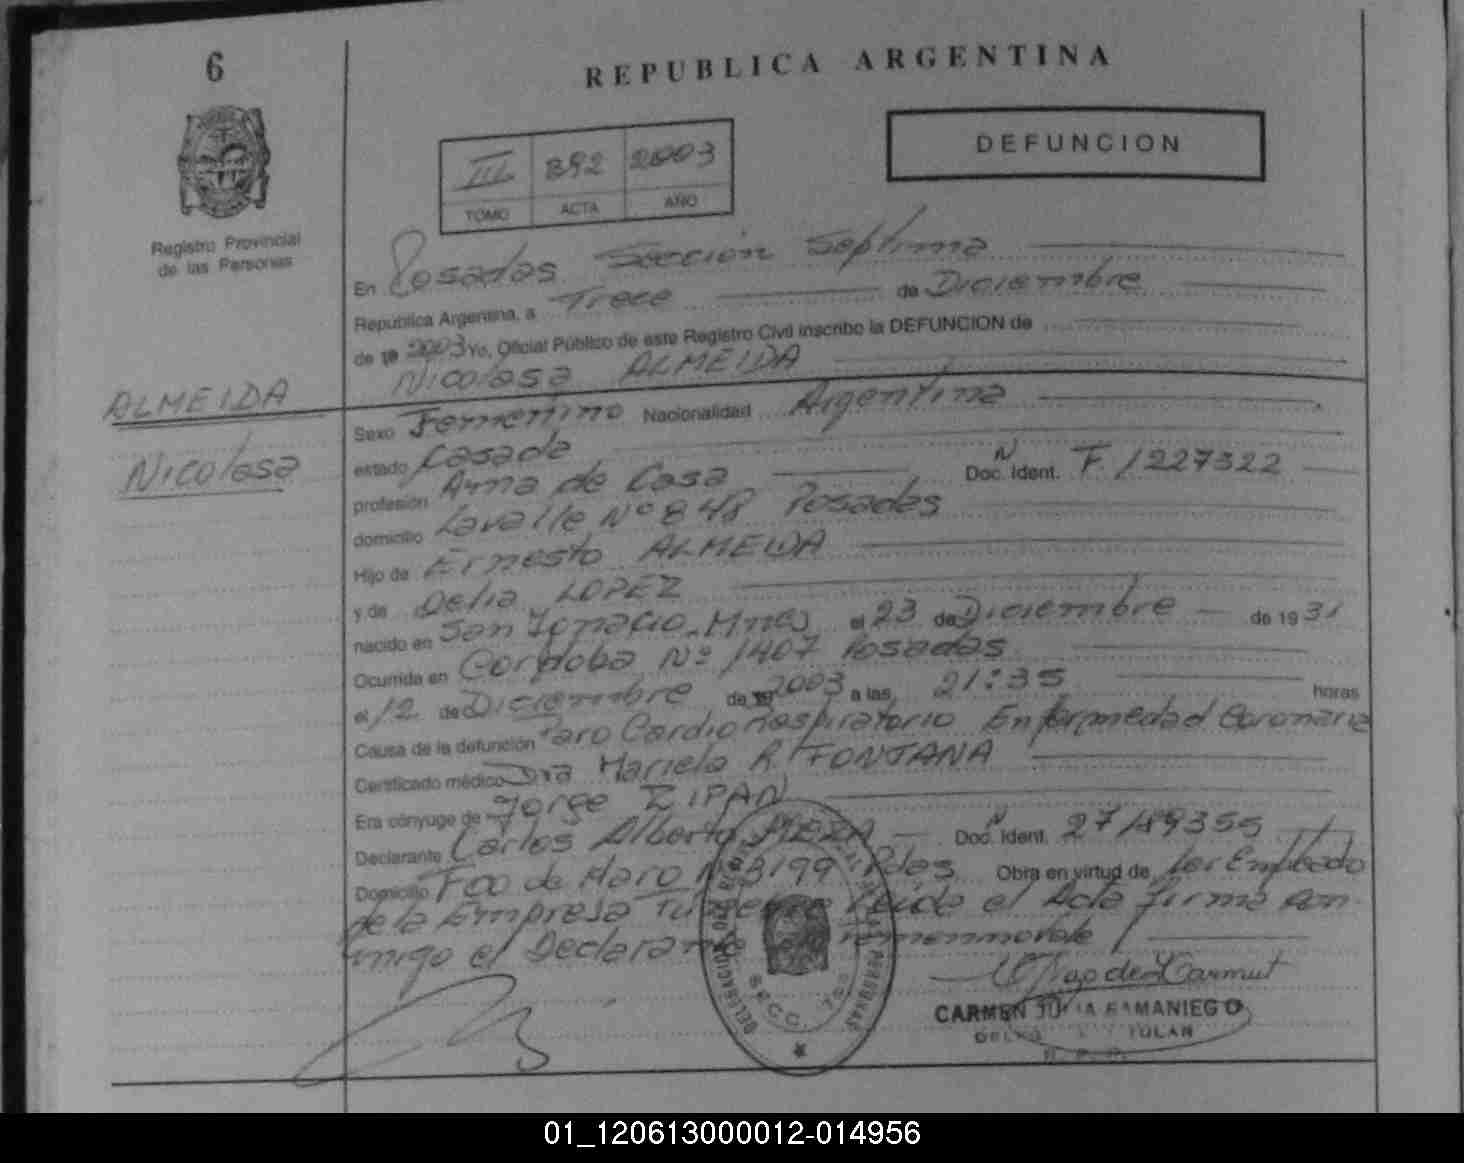 6
REPUBLICA ARGENTINA
DEFUNCION
III 892 2003
TOMO ACTA AÑO
Registro Provincial
de las Personas
En Posadas Sección Septima
República Argentina, a Trece de Diciembre
de 19 2003 Yo, Oficial Público de este Registro Civil inscribo la DEFUNCION de
Nicolasa ALMEIDA
ALMEIDA
Nicolasa
Sexo Femenino Nacionalidad Argentina
estado Casada
profesión Ama de Casa Doc. Ident. N F. 1227322
domicilio Lavalle Nº 848 Posadas
Hijo de Ernesto ALMEIDA
y de Delia LOPEZ
nacido en San Ignacio, Mnes el 23 de Diciembre de 1931
Ocurrida en Cordoba Nº 1407 Posadas
el 12 de Diciembre de 19 2003 a las 21:35 horas
Causa de la defunción Paro Cardio Respiratorio Enfermedad Coronaria
Certificado médico Dra Mariela R. FONTANA
Era cónyuge de Jorge ZIPAN
Declarante Carlos Alberto MEZA Doc. Ident. N 27189355
Domicilio Fco de Haro Nº 3199 Pdas Obra en virtud de Ser Empleado
de la Empresa leída el Acta firma con-
migo el Declarante
CARMEN RAMANIEGO
TULAR
SECC. 7
01_120613000012-014956